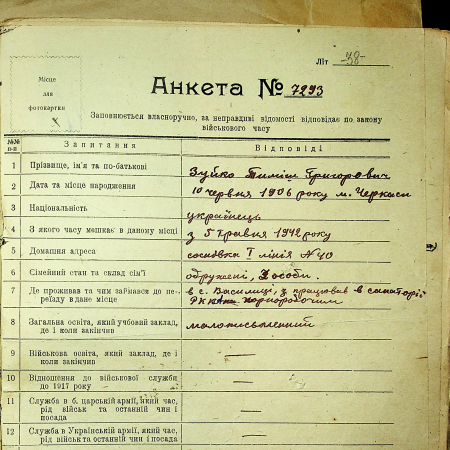 Літ -38-
Місце
для
фотокартки
Анкета № 7293
Заповнюється власноручно, за неправдиві відомості відповідає по закону
військового часу
№№ п-п Запитання Відповіді
1 Прізвище, ім'я та по-батькові Зуйко Тиміш Григорович
2 Дата та місце народження 10 червня 1906 року м. Черкаси
3 Національність українець
4 З якого часу мешкає в даному місці з 5 травня 1942 року
5 Домашня адреса соснівка I лінія №40
6 Сімейний стан та склад сім'ї одружені, особи.
7 Де проживав та чим займався до пе-
реїзду в дане місце
в с. Василиці, з працював в санаторії
чорноробочим
8 Загальна освіта, який учбовий заклад,
де і коли закінчив
малописьменний
9 Військова освіта, який заклад, де і
коли закінчив —
10 Відношення до військової служби
до 1917 року —
11 Служба в б. царській армії, який час,
рід військ та останній чин і
посада —
12 Служба в Українській армії, який час,
рід військ та останній чин і посада —